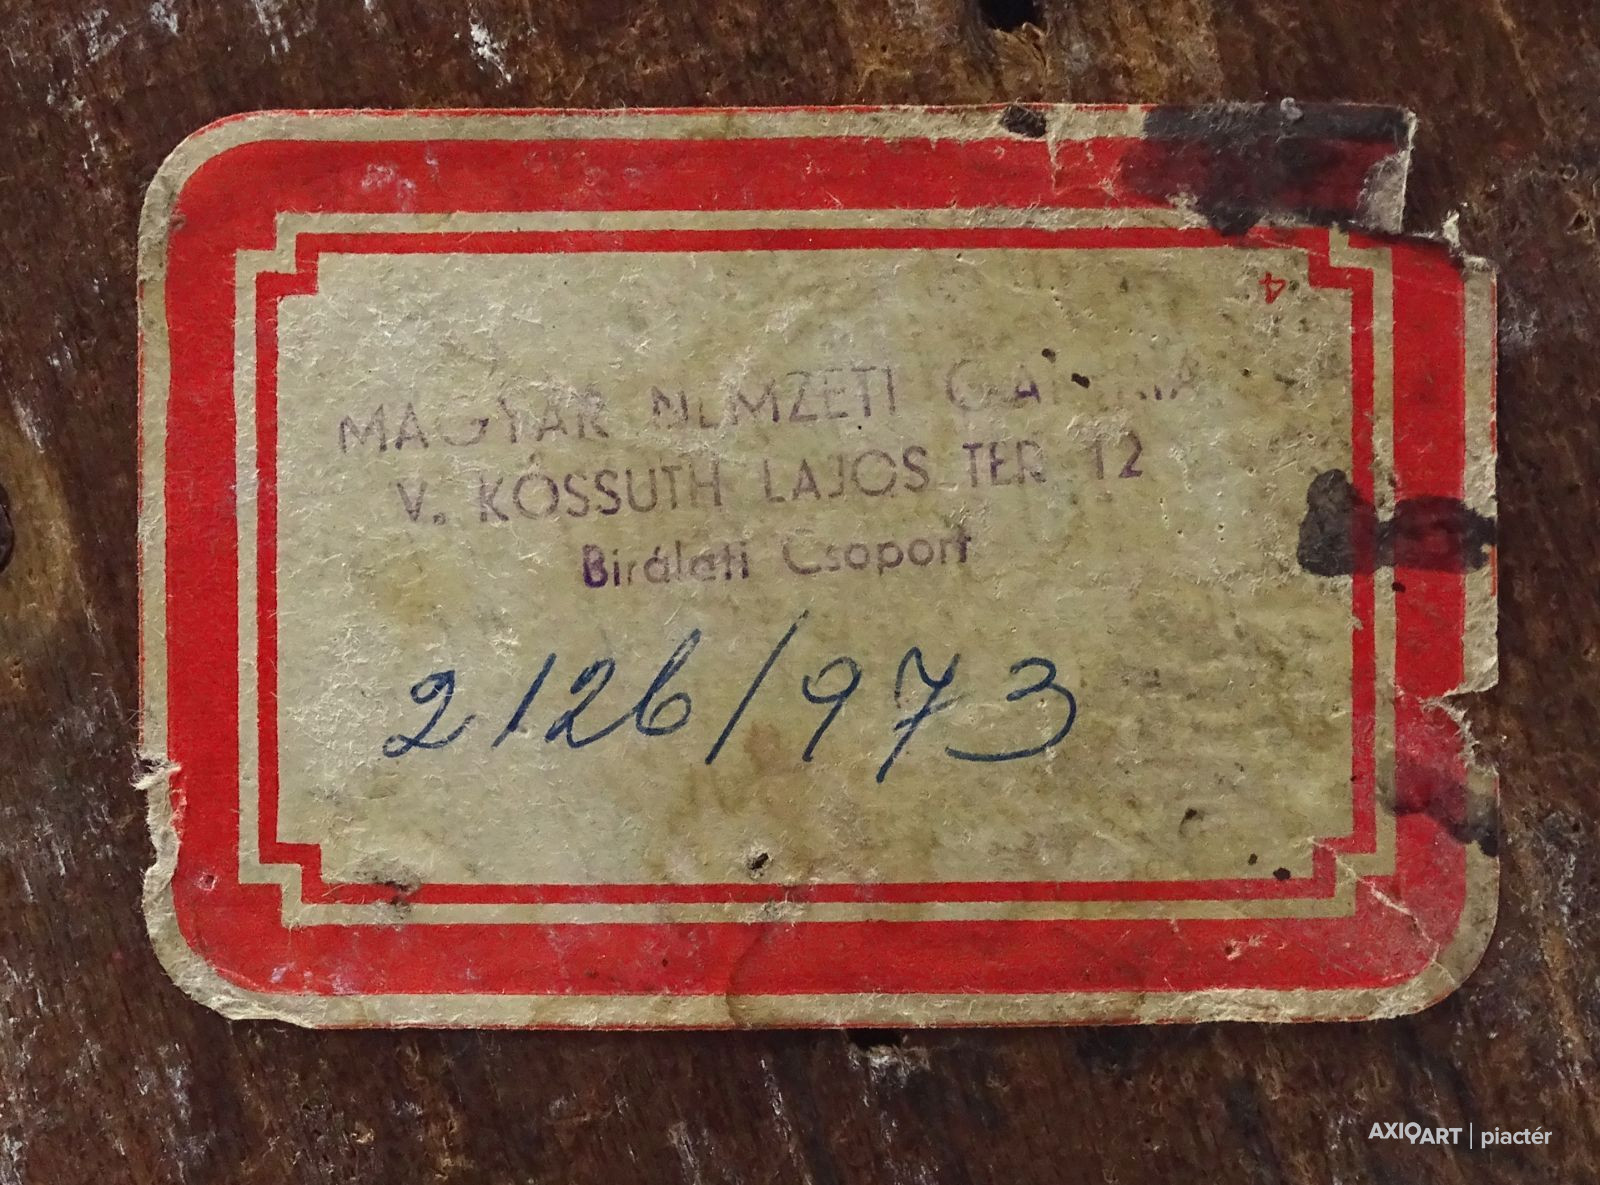 4
MAGYAR NEMZETI GALÉRIA
V. KOSSUTH LAJOS TER 12
Birálati Csoport
2126/973
AXIOART | piactér